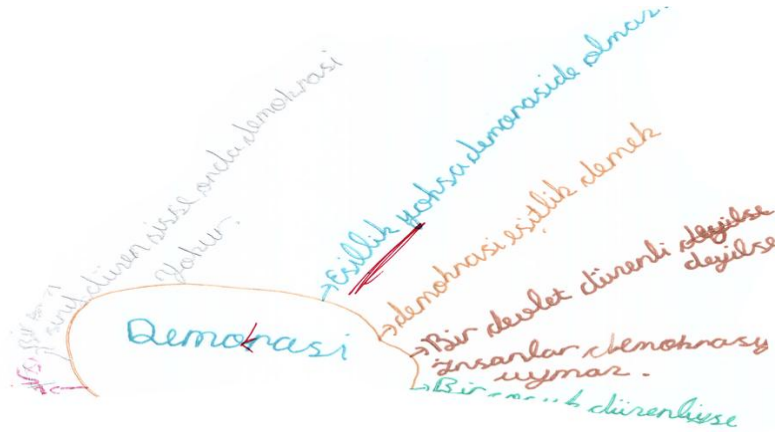 Bir
sınıf düzen sisse onda demokrasi
yokur.
Esillik yoksa demonaside olmaz.
demokrasi esitlik demek
Bir devlet dürenli deyilse
deyilse
insanlar demokrasy
uymaz.
Demokrasi
Bir düzenliyse